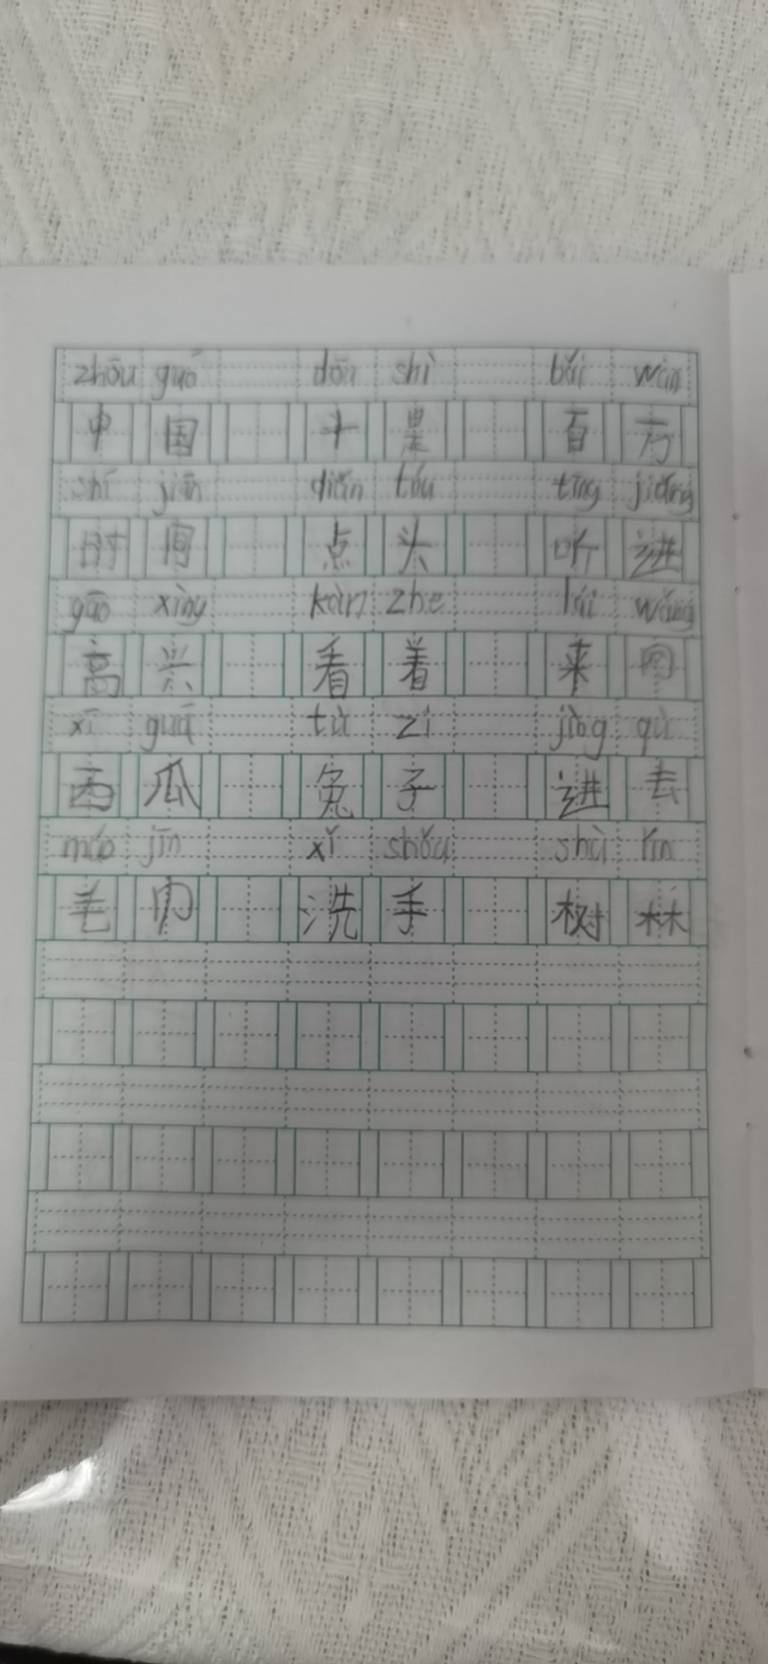 zhōu guó dōn shì bǎi wàn
中 国 十 是 百 万
shí jiān diǎn tóu tīng jiǎng
时 间 点 头 听 进
gāo xìng kàn zhe lái wǎng
高 兴 看 着 来
xī guā tù zi jìng qù
西 瓜 兔 子 进 去
máo jīn xǐ shǒu shù lín
毛 巾 洗 手 树 林